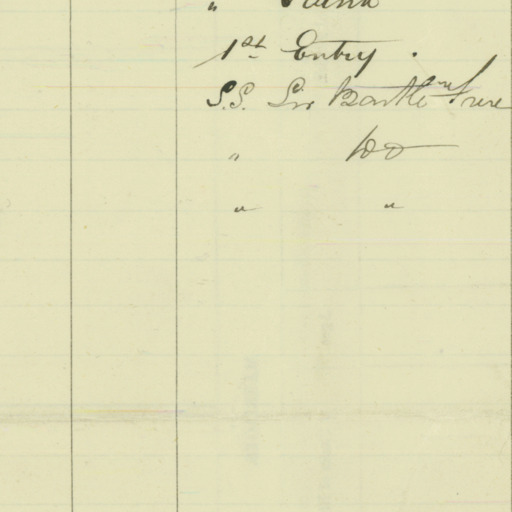 "
1st Entry.
S.S. Sir Bartle Frere
" Do
" "